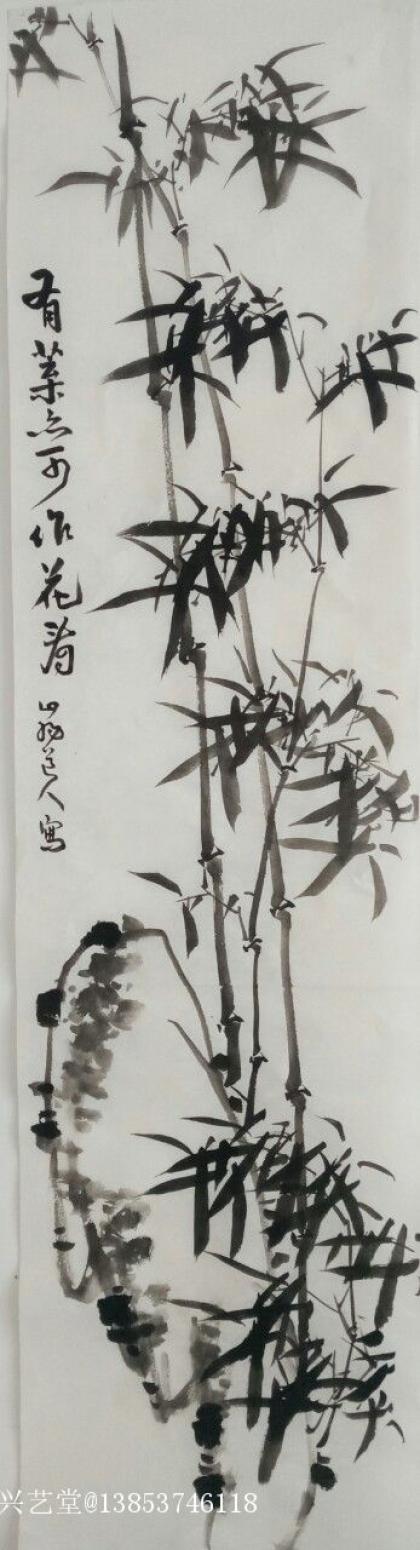 有叶亦可作花看
山孙道人写
兴艺堂@13853746118